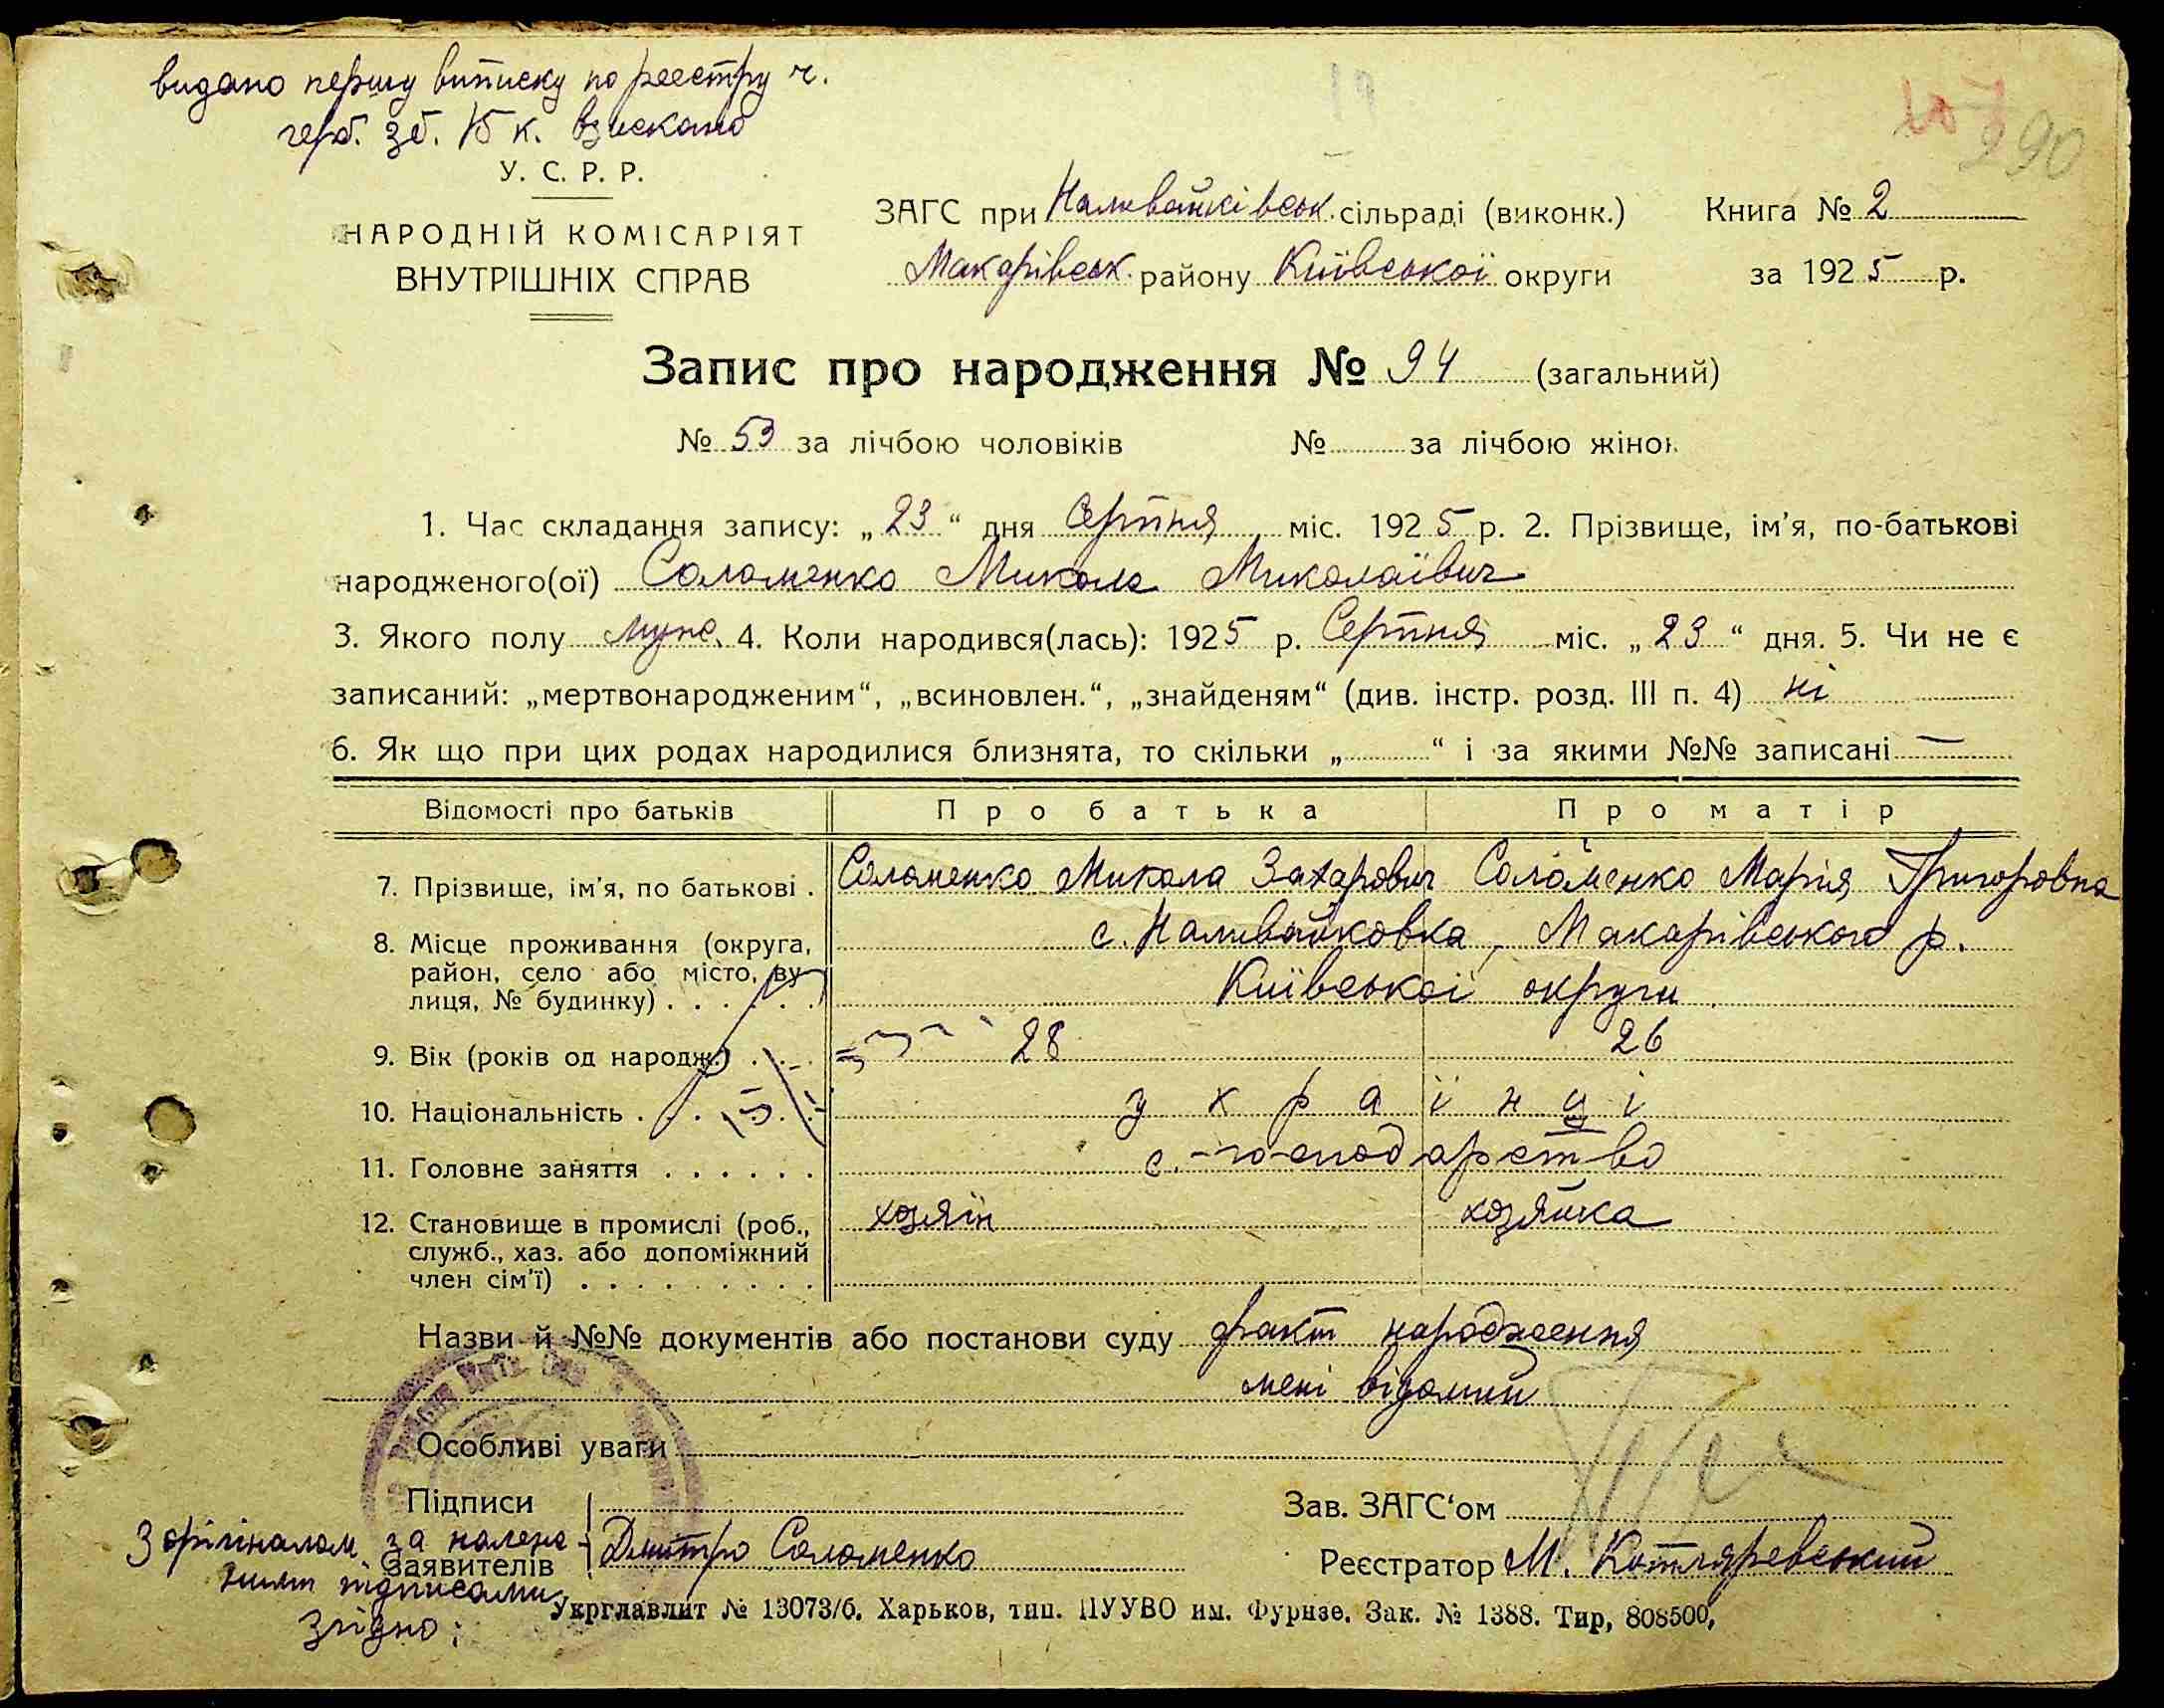 видано першу виписку по реестру ч.
герб. зб. 15 к. взискано
У. С. Р. Р.
НАРОДНІЙ КОМІСАРІЯТ
ВНУТРІШНІХ СПРАВ
290
ЗАГС при Наливайківськ. сільраді (виконк.) Книга № 2
Макарівськ. району Київської округи за 1925 р.
Запис про народження № 94 (загальний)
№ 53 за лічбою чоловіків № за лічбою жінок
1. Час складання запису: „23“ дня Серпня міс. 1925 р. 2. Прізвище, ім'я, по-батькові
народженого(ої) Соломенко Микола Миколаївич
3. Якого полу муж. 4. Коли народився(лась): 1925 р. Серпня міс. „23“ дня. 5. Чи не є
записаний: „мертвонародженим“, „всиновлен.“, „знайденям“ (див. інстр. розд. III п. 4) ні
6. Як що при цих родах народилися близнята, то скільки „ “ і за якими №№ записані —
Відомості про батьків Про батька Про матір
7. Прізвище, ім'я, по батькові . Соломенко Микола Захарович Соломенко Марія Григоровна
8. Місце проживання (округа, с. Наливайковка, Макарівського р.
район, село або місто, ву-
лиця, № будинку) . . . . . Київської округи
9. Вік (років од народж.) . . . 28 26
10. Національність . . . . . українці
11. Головне заняття . . . . . . с.-господарство
12. Становище в промислі (роб., хозяїн хозяйка
служб., хаз. або допоміжний
член сім'ї) . . . . . . . . .
Назви й №№ документів або постанови суду факт народження
мені відомий
Особливі уваги
Підписи Зав. ЗАГС‘ом
З оріґіналом за належ-
Заявителів Дмитро Соломенко Реєстратор М. Котляревський
ними підписами
згідно:
Укрглавлит № 13073/б. Харьков, тип. ПУУВО им. Фурнзе. Зак. № 1388. Тир, 808500,